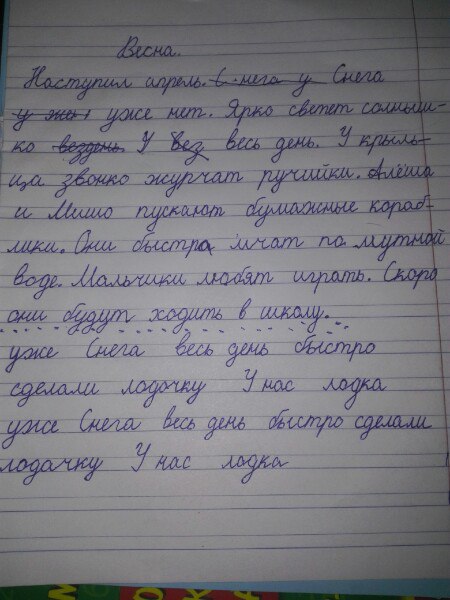 Весна.
Наступил апрель. С нега у Снега
у же уже нет. Ярко светет солныш-
ко вездень. У вез весь день. У крыль-
ца звонко журчат ручийки. Алёша
и Мишо пускают бумажные кораб-
лики. Они быстра мчат по мутной
воде. Мальчики любят играть. Скоро
они будут ходить в школу.
уже Снега весь день быстро
сделали лодочку У нас лодка
уже Снега весь день быстро сделали
лодачку У нас лодка